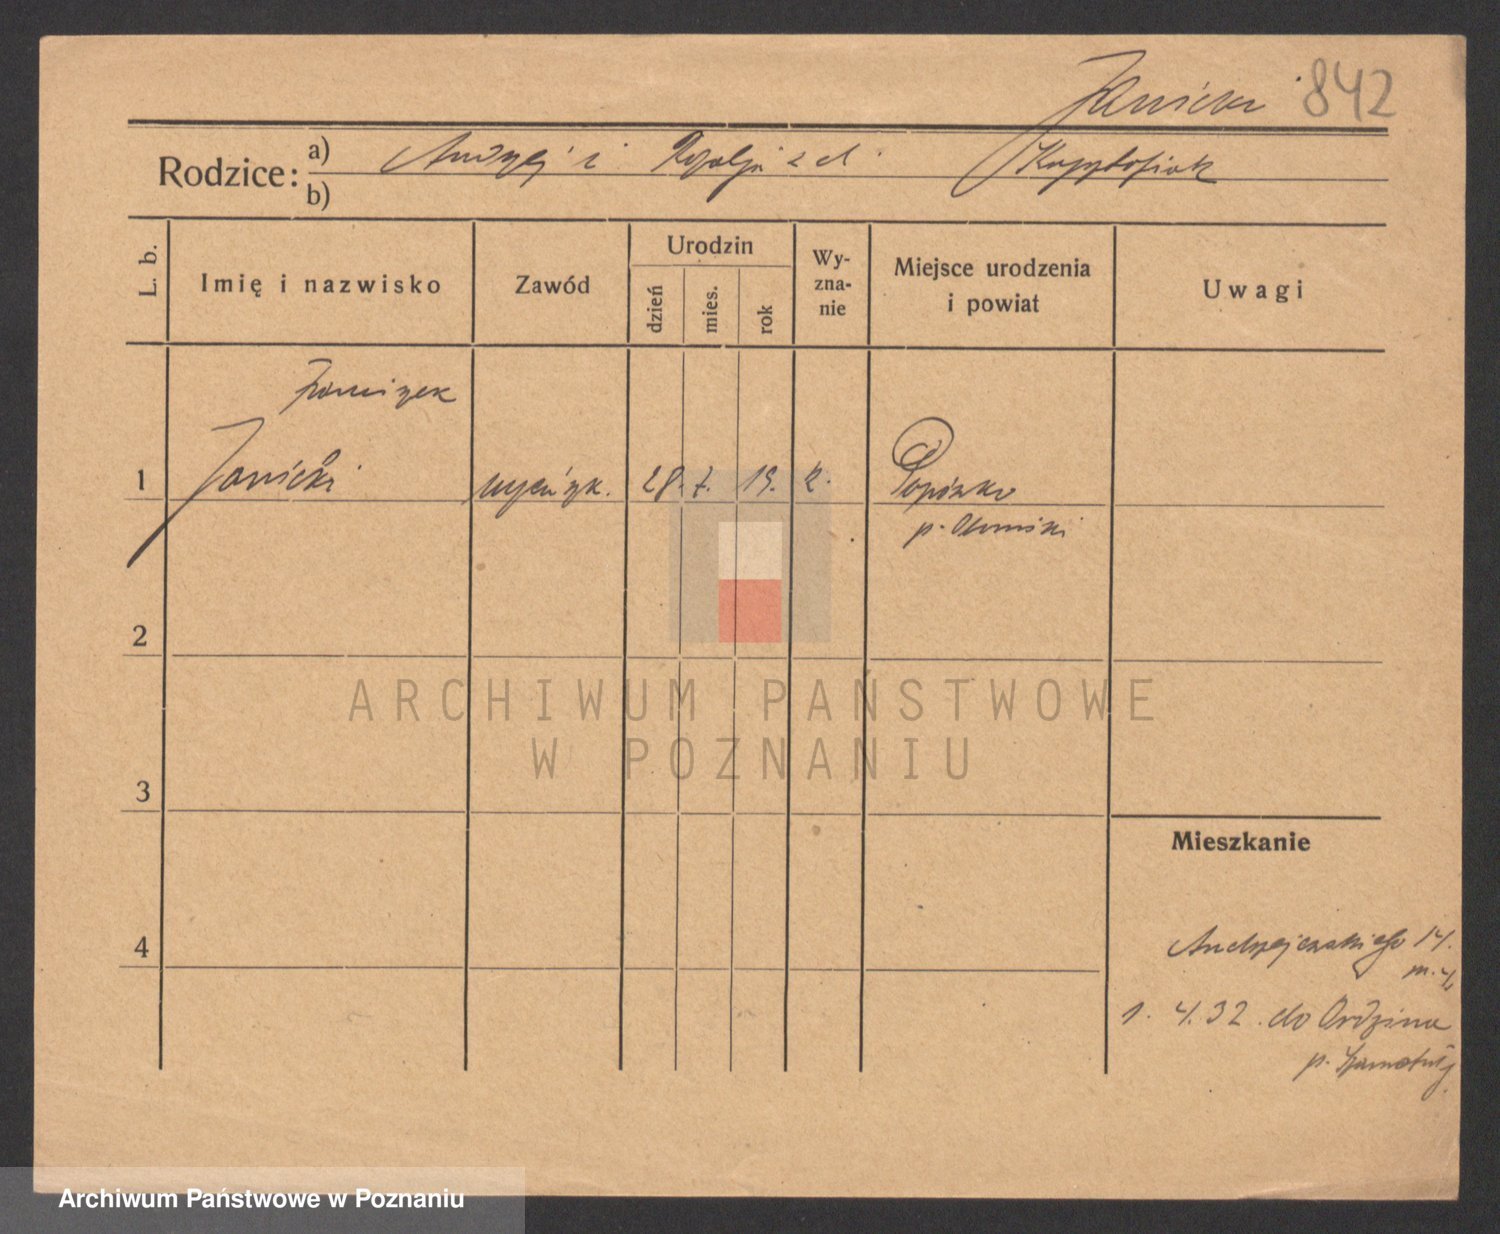 Janicki 842
Rodzice: a) Andrzej i Rozalja z d.
b)
L. b.
Imię i nazwisko
Zawód
Urodzin
dzień
mies.
rok
Wy-
zna-
nie
Miejsce urodzenia
i powiat
Uwagi
Franciszek
1 Janicki 28. 7. 19. k. Popówko
p. Obornicki
2
ARCHIWUM PAŃSTWOWE
W POZNANIU
3
Mieszkanie
4 Andrzejewskiego 14.
m. 4
1. 4. 32. do Ordzina
p. Szamotuły
Archiwum Państwowe w Poznaniu